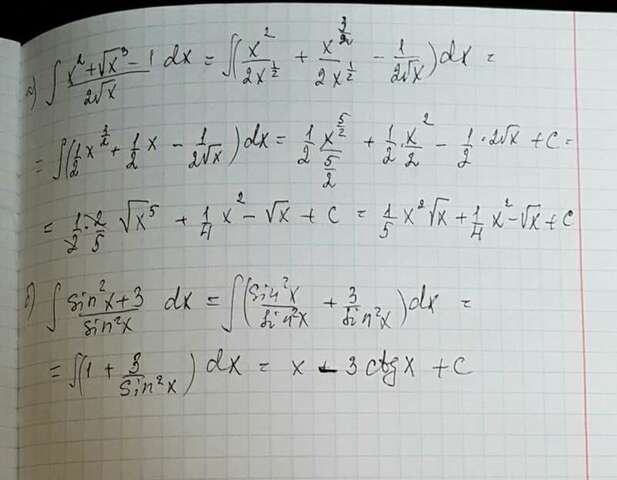 а) ∫ (x² + √x³ - 1)/(2√x) dx = ∫(x²/(2x^(1/2)) + x^(3/2)/(2x^(1/2)) - 1/(2√x))dx =
= ∫(1/2 x^(3/2) + 1/2 x - 1/(2√x))dx = 1/2 · x^(5/2)/(5/2) + 1/2 · x²/2 - 1/2 · 2√x + C =
= 1/2 · 2/5 √x⁵ + 1/4 x² - √x + C = 1/5 x²√x + 1/4 x² - √x + C
б) ∫ (sin²x + 3)/(sin²x) dx = ∫(sin²x/sin²x + 3/sin²x)dx =
= ∫(1 + 3/sin²x) dx = x - 3 ctgx + C